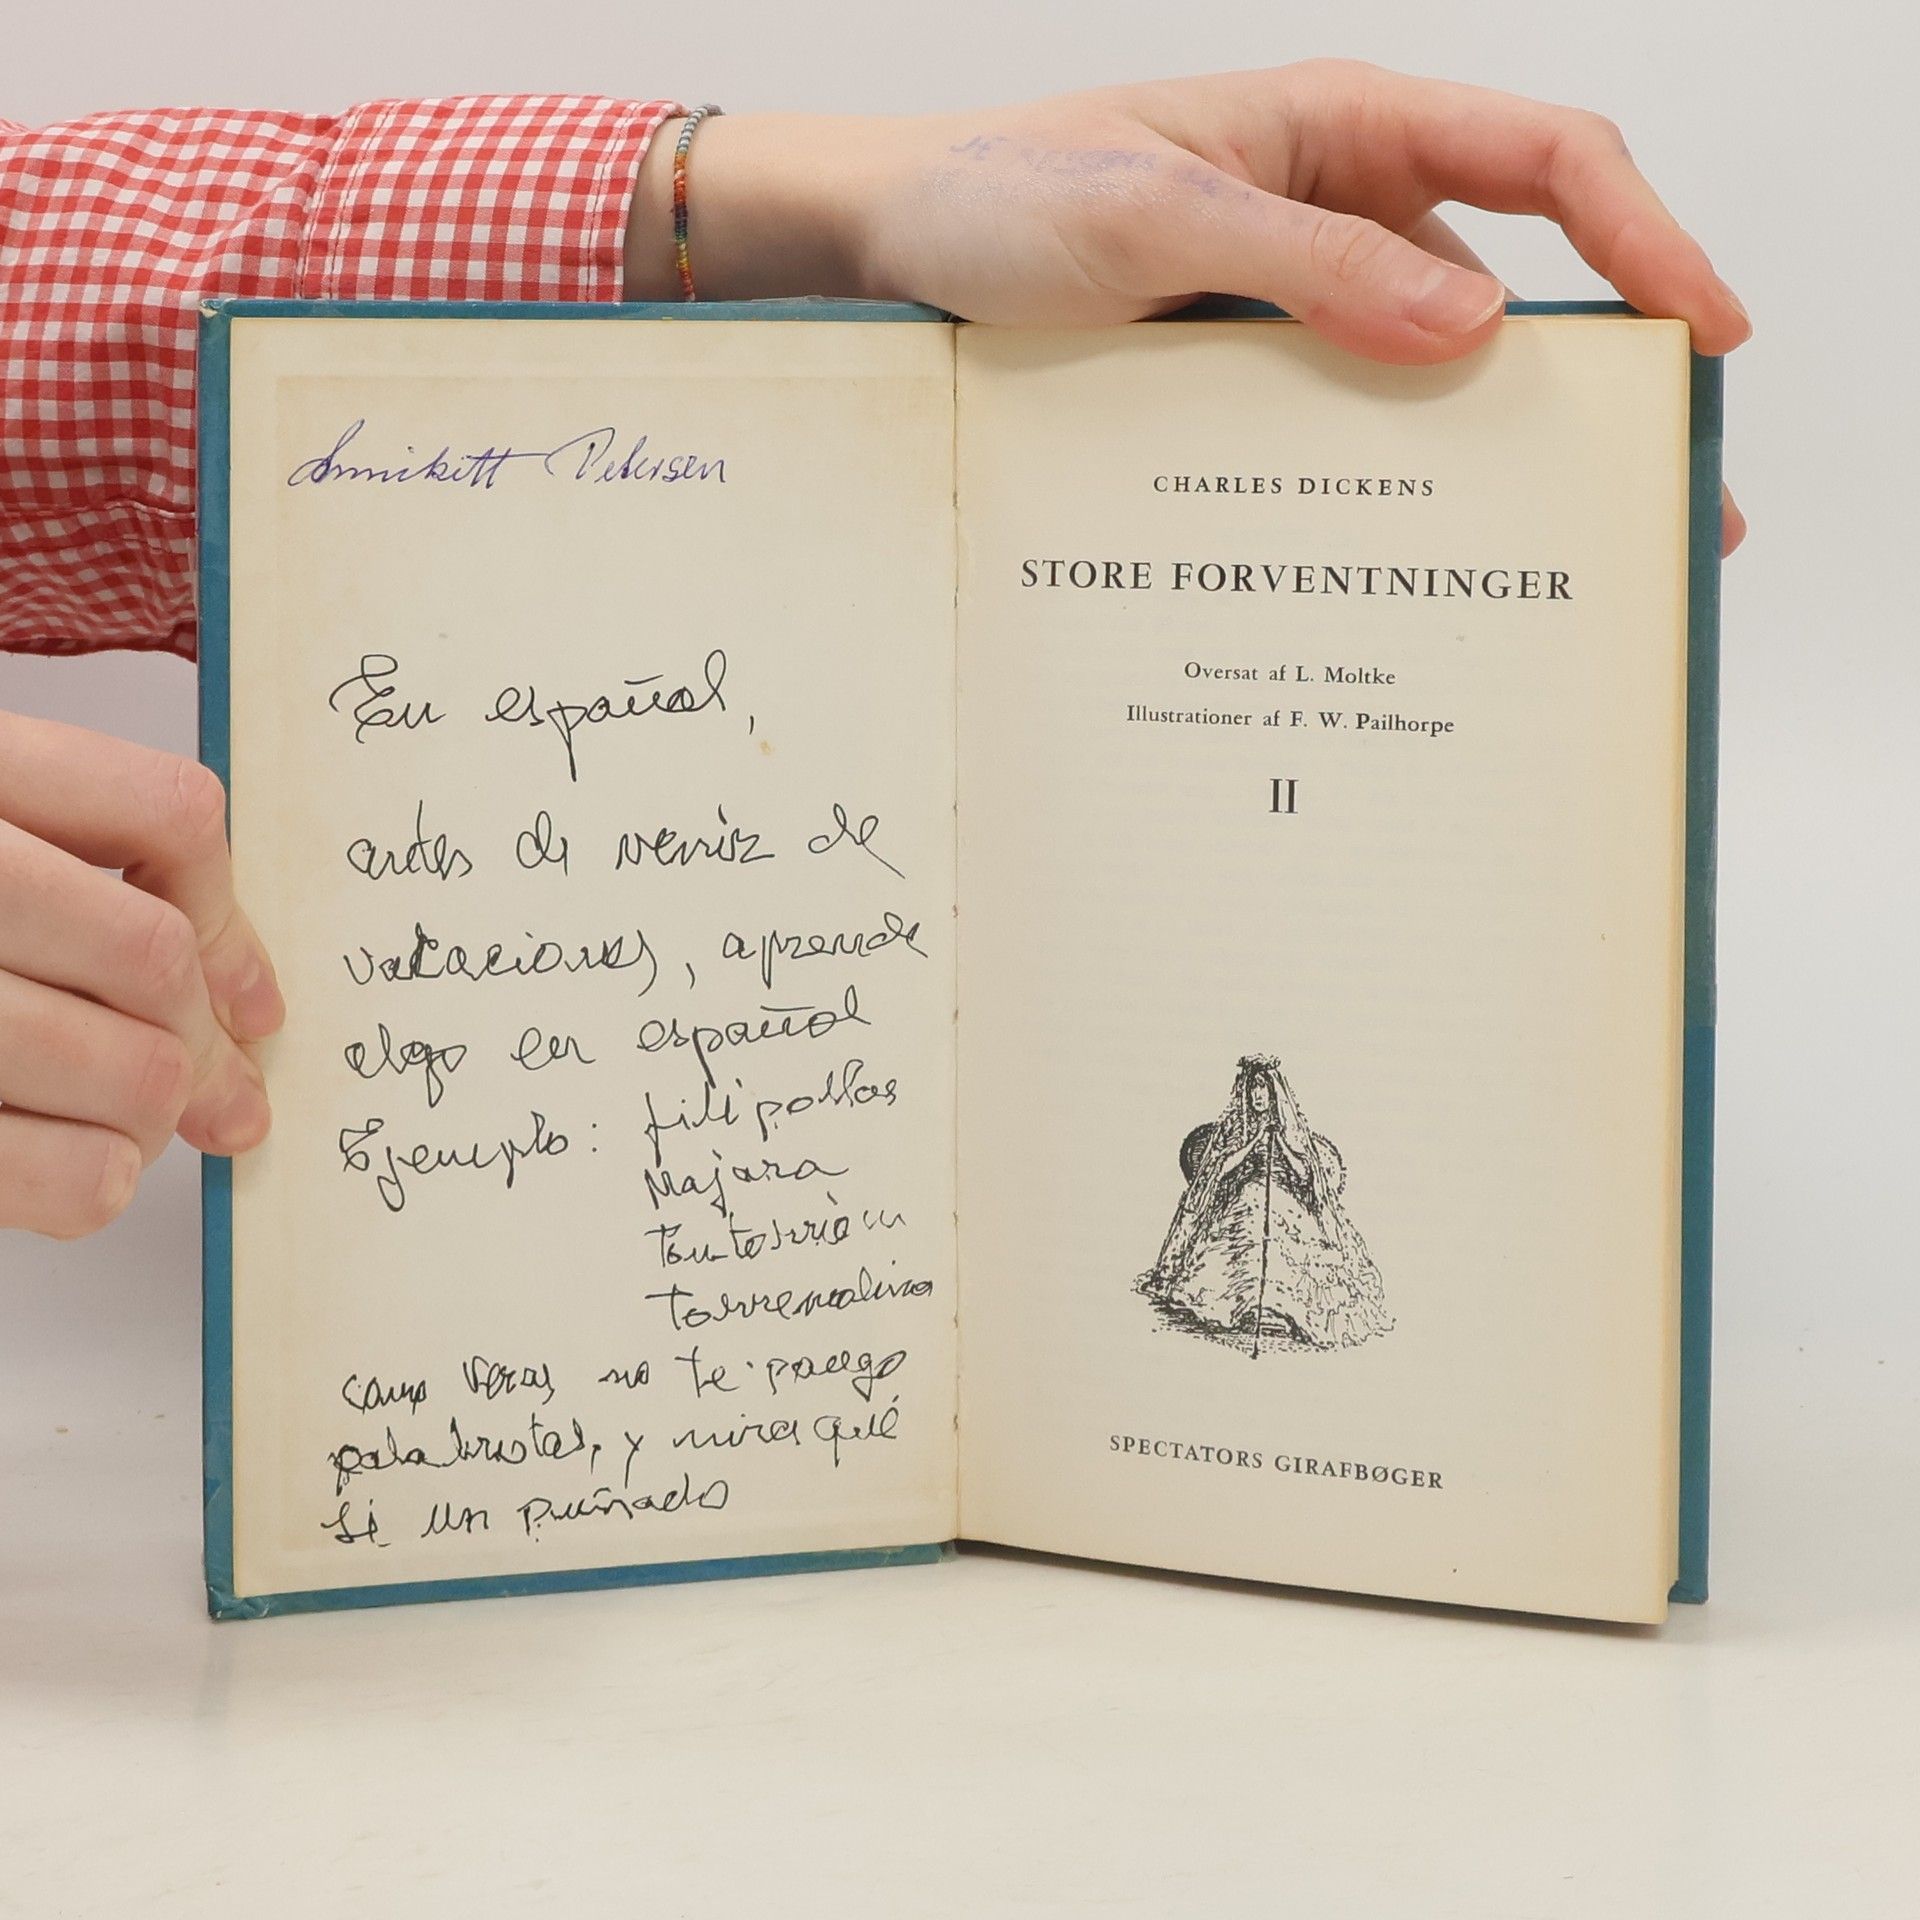 Annikitt Petersen
En español,
antes de venir de
vacaciones, aprende
algo en español
Ejemplo: filipollas
Majara
Tontorrión
Torremolino
como veras no te pongo
palabrotas, y mira qué
sé un puñado
CHARLES DICKENS
STORE FORVENTNINGER
Oversat af L. Moltke
Illustrationer af F. W. Pailhorpe
II
SPECTATORS GIRAFBØGER